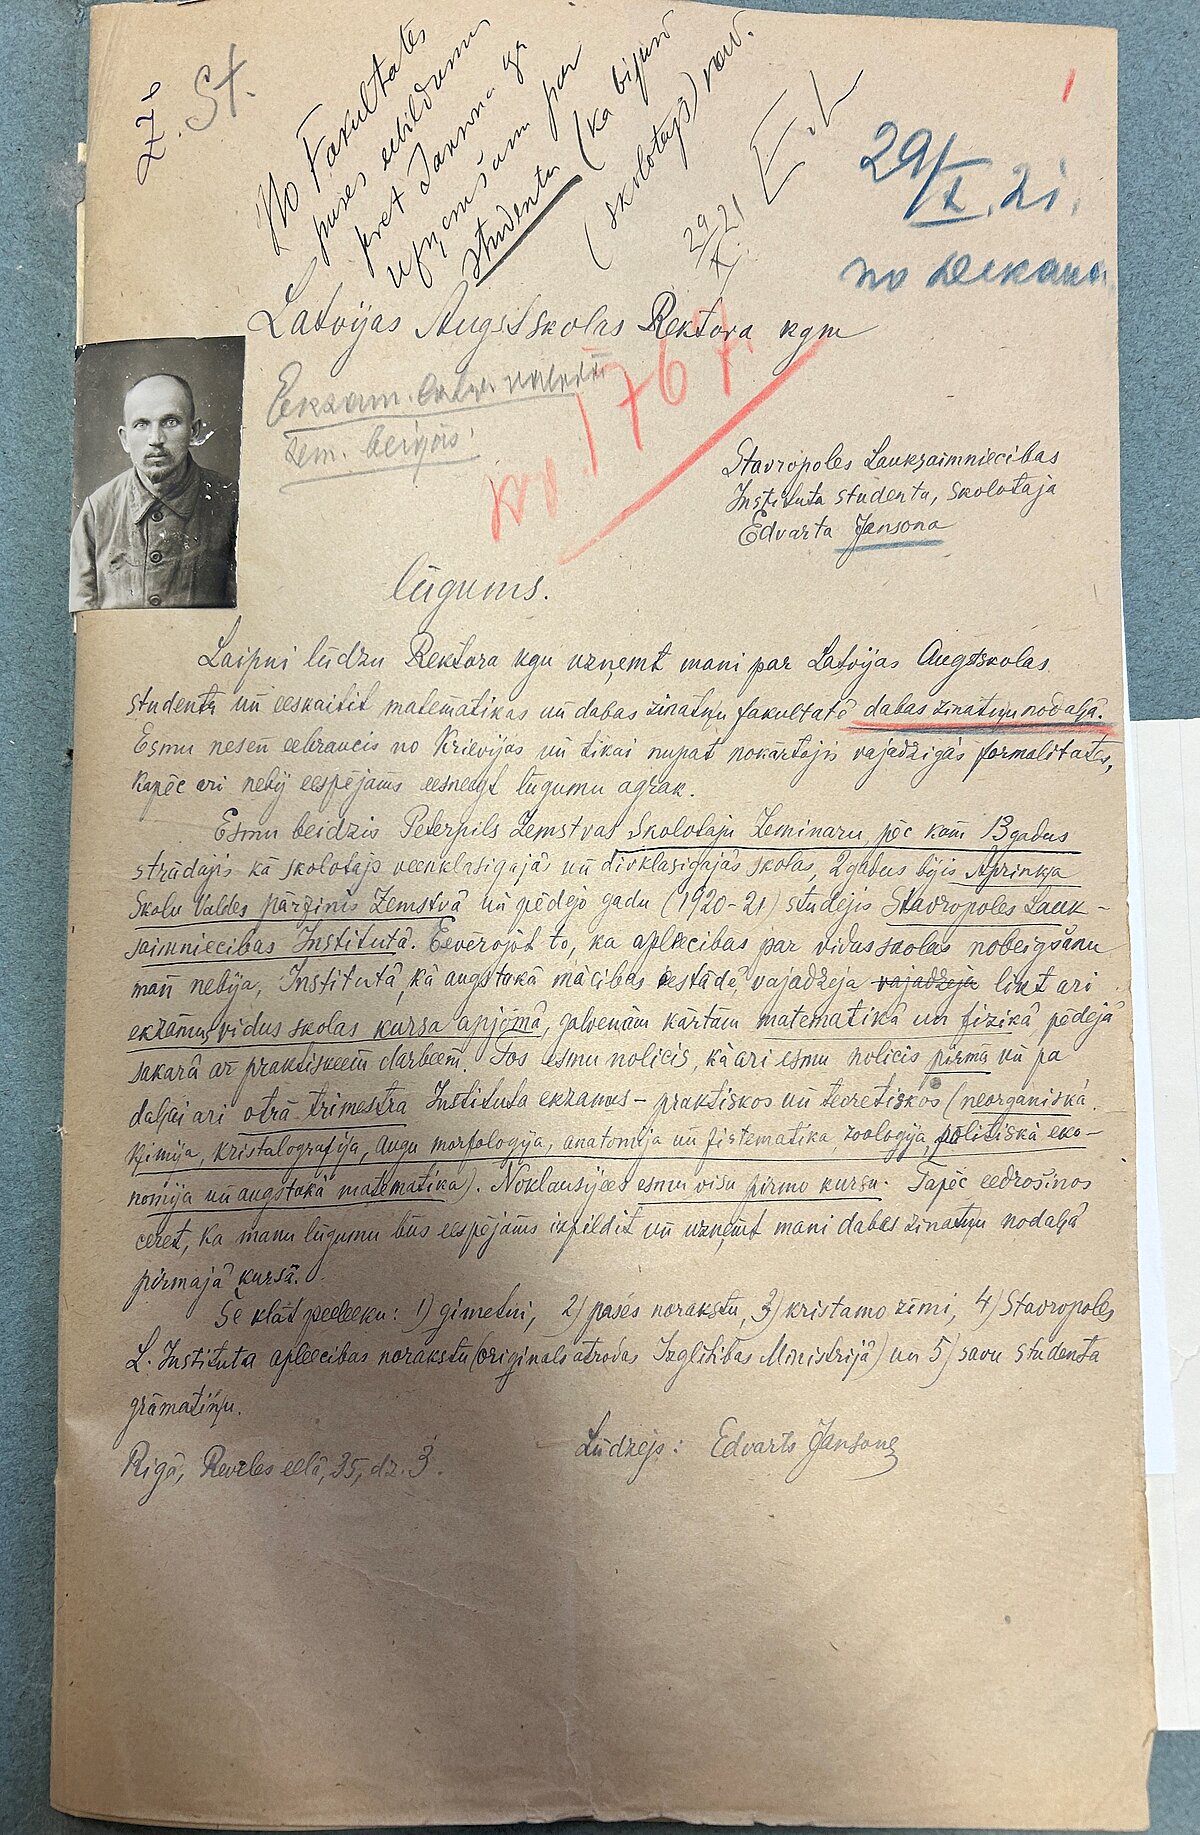 276
St.
No Fakultates
puses
pret Jansona
uzņemšanu par
studentu (kā bijuš
(skolotajs) nav.
29/X 21
29/X. 21.
no dekana
Latvijas Augstskolas Rektora kgm
Eksam.
sem. beigās.
1767.
Stavropoles Lauksaimniecibas
Instituta studenta, skolotaja
Edvarta Jansona
lūgums.
Laipni lūdzu Rektora kgu uzņemt mani par Latvijas Augstskolas
studentu un eeskaitit matemātikas un dabas zinatņu fakultatē dabas zinatņu nodaļā.
Esmu nesen eebraucis no Krievijas un tikai nupat nokārtojis vajadzigās formalitates,
kapēc ari nebij eespējams eesneegt lūgumu agrak.
Esmu beidzis Peterpils Zemstvas Skolotaju Seminaru, pēc kam 13 gadus
strādajis kā skolotajs veenklasigajās un divklasigajās skolās, 2 gadus bijis Apriņķa
Skolu Valdes pārzinis Zemstvā un pēdejo gadu (1920-21) studējis Stavropoles Lauk-
saimniecibas Institutā. Eevērojot to, ka apleecibas par vidusskolas nobeigšanu
man nebija, Institutā, kā augstakā mācibas eestādē, vajadzēja vajadzēja likt ari
ekzamus vidus skolas kursa apjomā, galvenām kārtām matematikā un fizikā pēdējā
sakarā ar praktiskeem darbeem. Tos esmu nolicis, kā ari esmu nolicis pirmā un pa
daļai ari otrā trimestra Instituta ekzamus - praktiskos un teoretiskos (neorganiskā
ķimija, kristalografija, augu morfoloģija, anatomija un sistematika, zooloģija, politiskā eko-
nomija un augstakā matematika). Noklausijees esmu visu pirmo kursu. Tapēc eedrošinos
ceret, ka manu lūgumu būs eespējams izpildit un uzņemt mani dabas zinatņu nodaļā
pirmajā kursā.
Še klāt peeleeku: 1) ģimetni, 2) pases norakstu, 3) kristamo zimi, 4) Stavropoles
L. Instituta apleecibas norakstu (originals atrodas Izglitibas Ministrijā) un 5) savu studenta
grāmatiņu.
Rigā, Reveles eelā, 35, dz. 3.
Lūdzejs: Edvarts Jansons